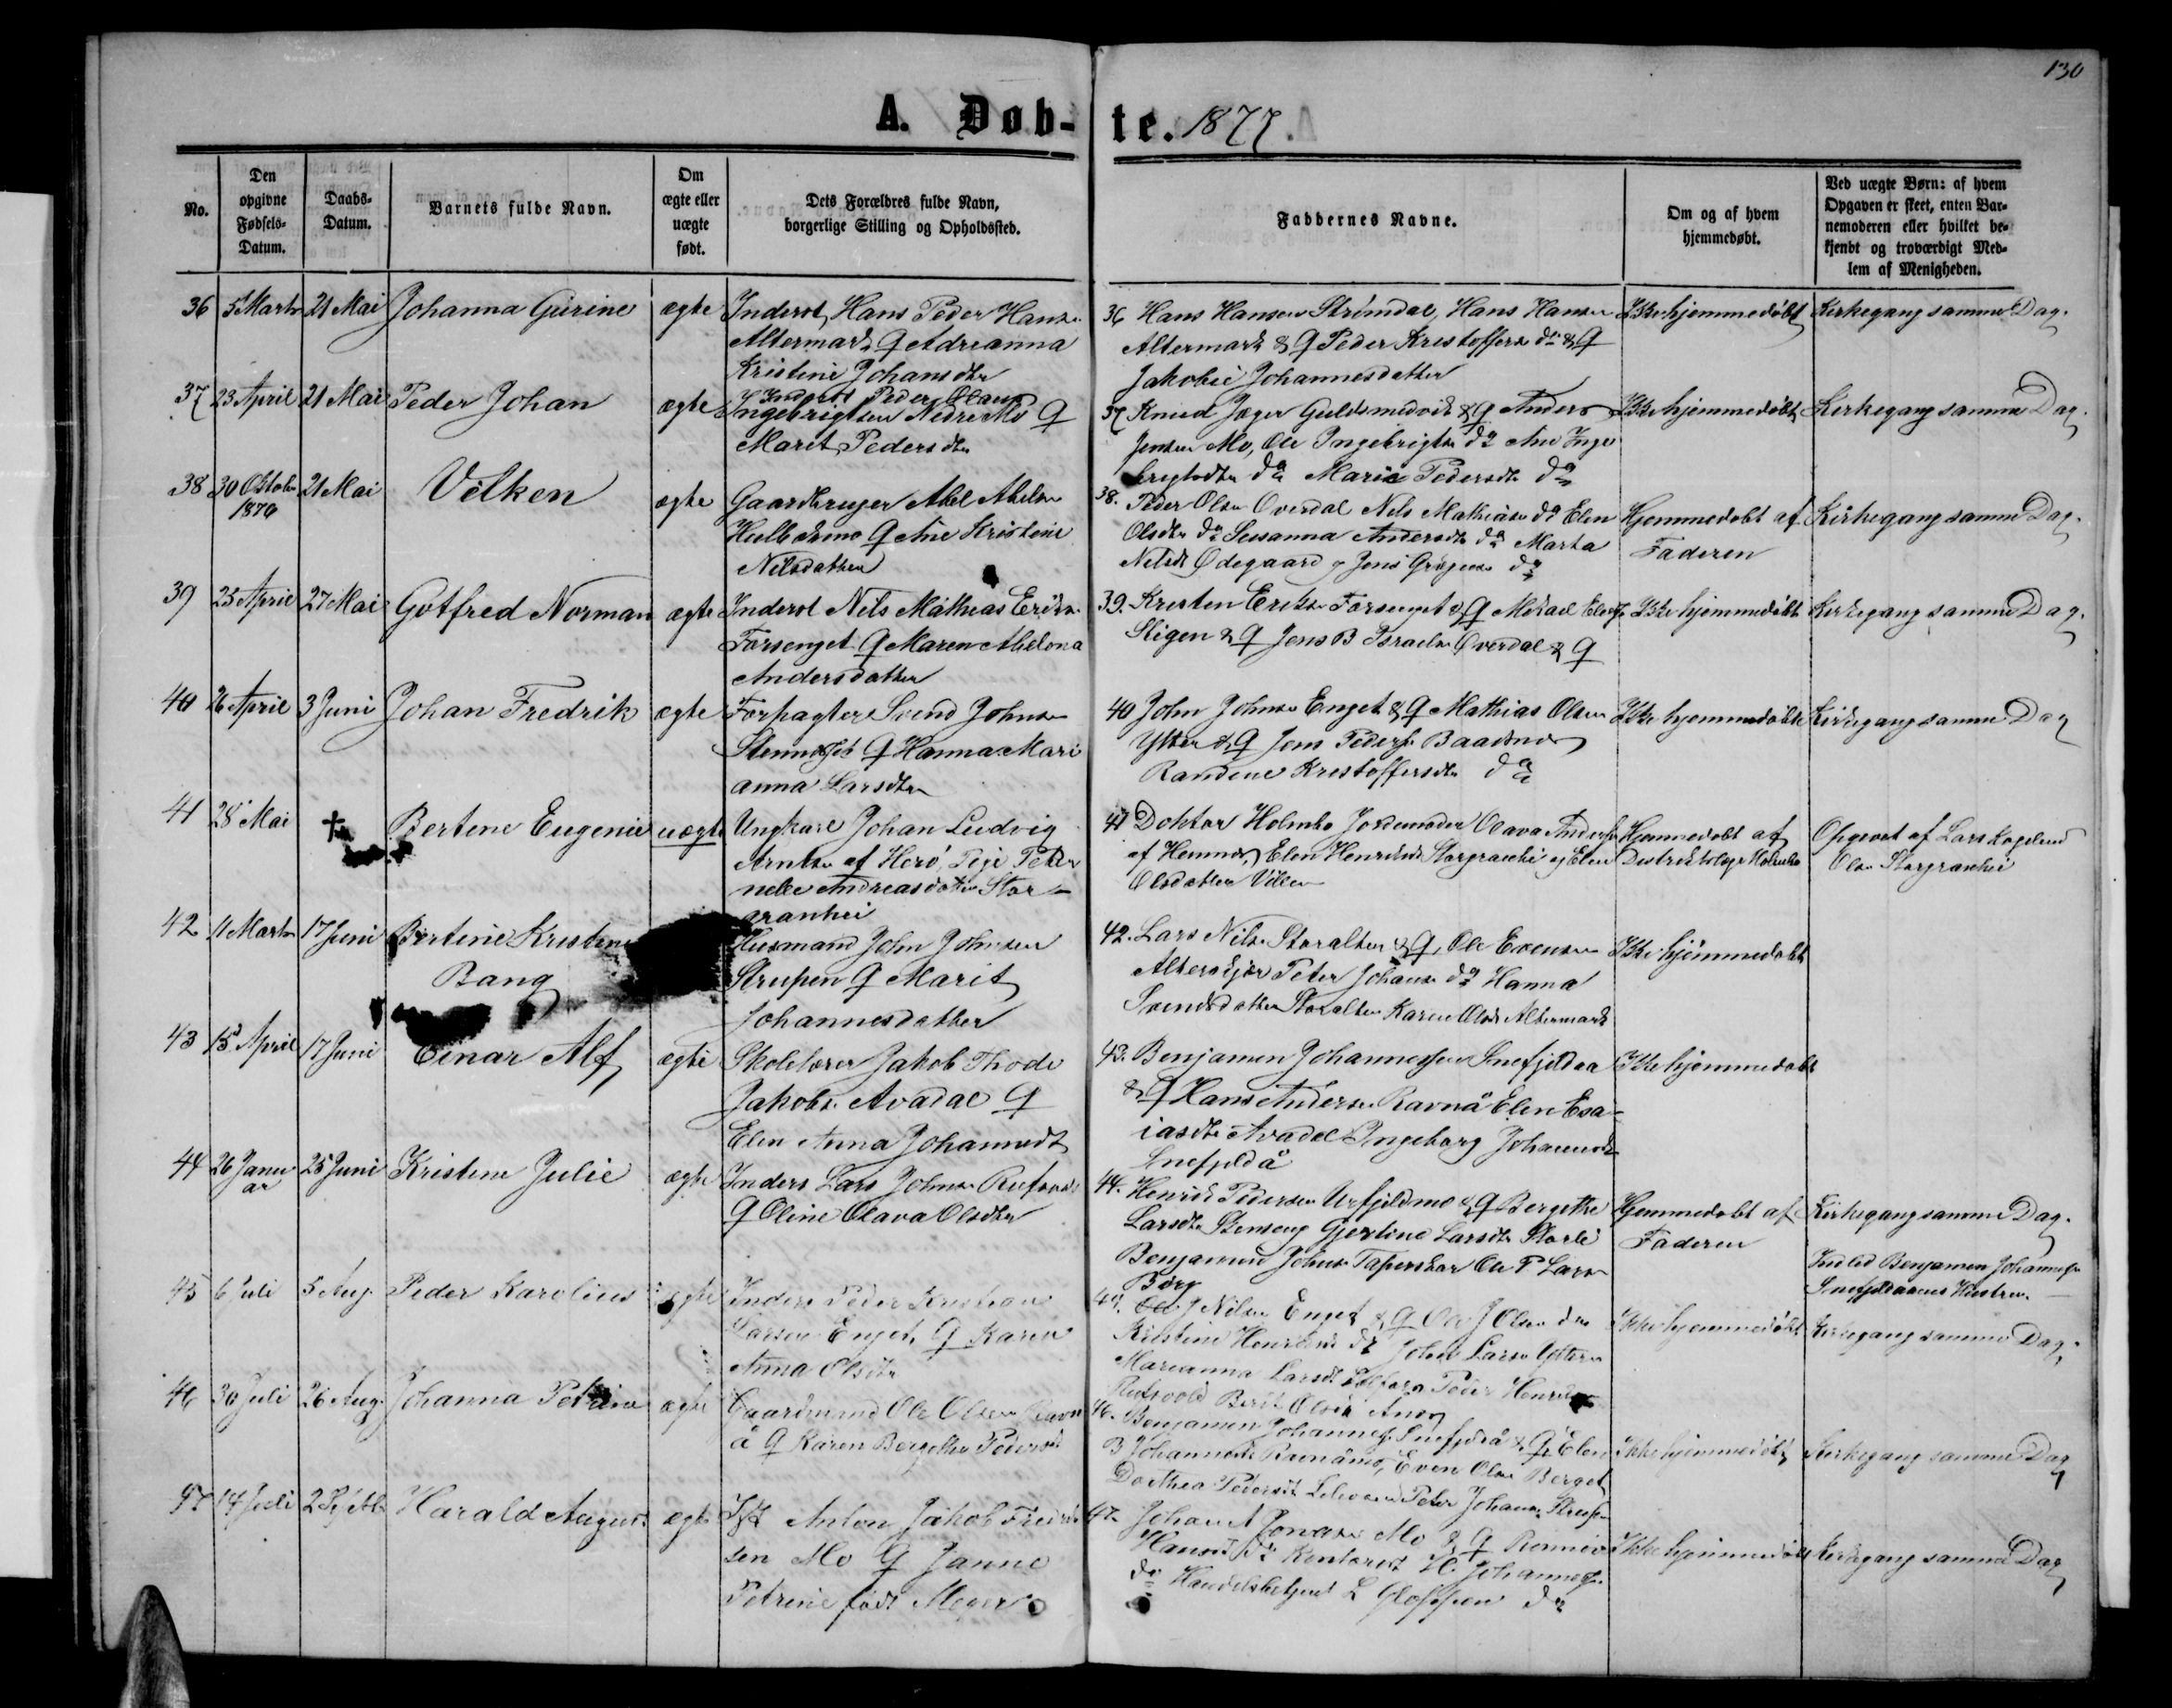 130
A. Døb-te. 1877.
No.
Den opgivne Fødsels-Datum.
Daabs-Datum.
Barnets fulde Navn.
Om ægte eller uægte født.
Dets Forældres fulde Navn, borgerlige Stilling og Opholdssted.
Faddernes Navne.
Om og af hvem hjemmedøbt.
Ved uægte Børn: af hvem Opgaven er skeet, enten Barnemoderen eller hvilket bekjendt og troværdigt Medlem af Menigheden.
36 5 Marts 21 Mai Johanna Gurine ægte Inderst Hans Peder Hans.
Altermark Q Adrianna
Kristine Johansdtr
36 Hans Hansen Strømdal, Hans Hansen
Altermark & Q Peder Kristoffers do & Q
Jakobie Johannesdatter
Ikke hjemmedøbt
Kirkegang samme Dag.
37 23 April 21 Mai Peder Johan ægte Inderst Peder Olaus
Ingebrigtsen Nedre Mo Q
Marit Pedersdtr
37 Knud Jæger Guldsmedvik & Q Anders
Jensen Mo, Ole Ingebrigts do Ane Inge
brigtsdtr do Marie Pedersdtr do
Ikke hjemmedøbt
Kirkegang samme Dag.
38 30 Oktobr 1876 21 Mai Velken ægte Gaardbruger Abel Abels.
Q Ane Kristine
Nilsdatter
38. Peder Olsen Overdal Nils Mathias. do Elen
Olsdtr do Susanna Andersdtr do Marta
Nilsdtr Ødegaard Jens do
Hjemmedøbt af
Faderen
Kirkegang samme Dag.
39 25 April 27 Mai Gotfred Norman ægte Inderst Nils Mathias Eriks.
Forsenget Q Maren Abelona
Andersdatter
39. Kristen Eriks. Forsenget & Q Mikael
Stigen & Q Jens B Israels. Overdal & Q
Ikke hjemmedøbt
Kirkegang samme Dag.
40 26 April 3 Juni Johan Fredrik ægte Forpagter Svend Johns.
Q Hanna Mari
anna Larsdtr
40 John Johns. Enget & Q Mathias Olsen
Ytter & Q Jens Peders. Baadsnes
Randine Kristoffersdtr do
Ikke hjemmedøbt
Kirkegang samme Dag
41 28 Mai Bertine Eugenie uægte Ungkarl Johan Ludvig
Arntsen af Herø Pige Peter
nelle Andreasdatter Stor-
granhei
41 Doktor Holmbo Jordemoder Olava Anders.
af Hemnes, Elen Henriksdtr Storgranhei og Elen
Olsdatter Villen
Hjemmedøbt af
Distriktslæge Holmbo
Opgivet af Lars
Olsen Storgranhei
42 11 Marts 17 Juni Bertine Kristine
Bang
Husmand John Johnsen
Strupen Q Marit
Johannesdatter
42. Lars Nils. Storalteren & Q, Ole Evensen
Alterskjær Peter Johans. do Hanna
Svendsdatter Storalteren Karen Olsdtr Altermark
Ikke hjemmedøbt
43 15 April 17 Juni Einar Alf ægte Skolelærer Jakob Thode
Jakobs. Avadal Q
Elen Anna Johannesdt
43. Benjamin Johannessen Snefjeldaa
& Q Hans Anders. Ravnå Elen Esa-
iasdtr Avadal Ingeborg Johannesdtr
Snefjeldå
Ikke hjemmedøbt
44 26 Janu
ar 25 Juni Kristine Julie ægte Inders Lars Johns.
Q Oline Olava Olsdtr
44. Henrik Pedersen Urfjeldmo & Q Bergithe
Larsdtr Stenseng Gjertine Larsdtr Storli
Benjamin Johns. Taperskar Ole P Lars.
Borg
Hjemmedøbt af
Faderen
Kirkegang samme Dag.
Indled Benjamin Johannes.
Snefjeldaaens Hustru.
45 6 Juli 5 Aug. Peder Karolius ægte Inders Peder Kristian
Larsen Enget, Q Karen
Anna Olsdtr
45. Ole J Nilsen Enget & Q Ole J Olsen do
Kristine Henriksdtr do Johan Lars. Ytteren
Marianna Larsdt Peder Henriks.
Berit Olsdtr
Ikke hjemmedøbt
Kirkegang samme Dag.
46 30 Juli 26 Aug. Johanna Petrine ægte Gaardmand Ole Olsen Ravn
å Q Karen Bergithe Pedersdt
46. Benjamin Johannes. Snefjeldå & Q, Elen
B Johannesdtr Ravnåmo, Even Olsen Berget
Dorthea Pedersdt Peter Johans. Strupen
Ikke hjemmedøbt
Kirkegang samme Dag
47 14 Juli 2 Septbr Harald August ægte Anton Jakob Fredrik
sen Mo Q Janne
Petrine født Meyer
47. Johan A Jonasen Mo & Q
Hansdt do Kontorist H. Johannes.
do Handelsbetjent L do
Ikke hjemmedøbt
Kirkegang samme Dag